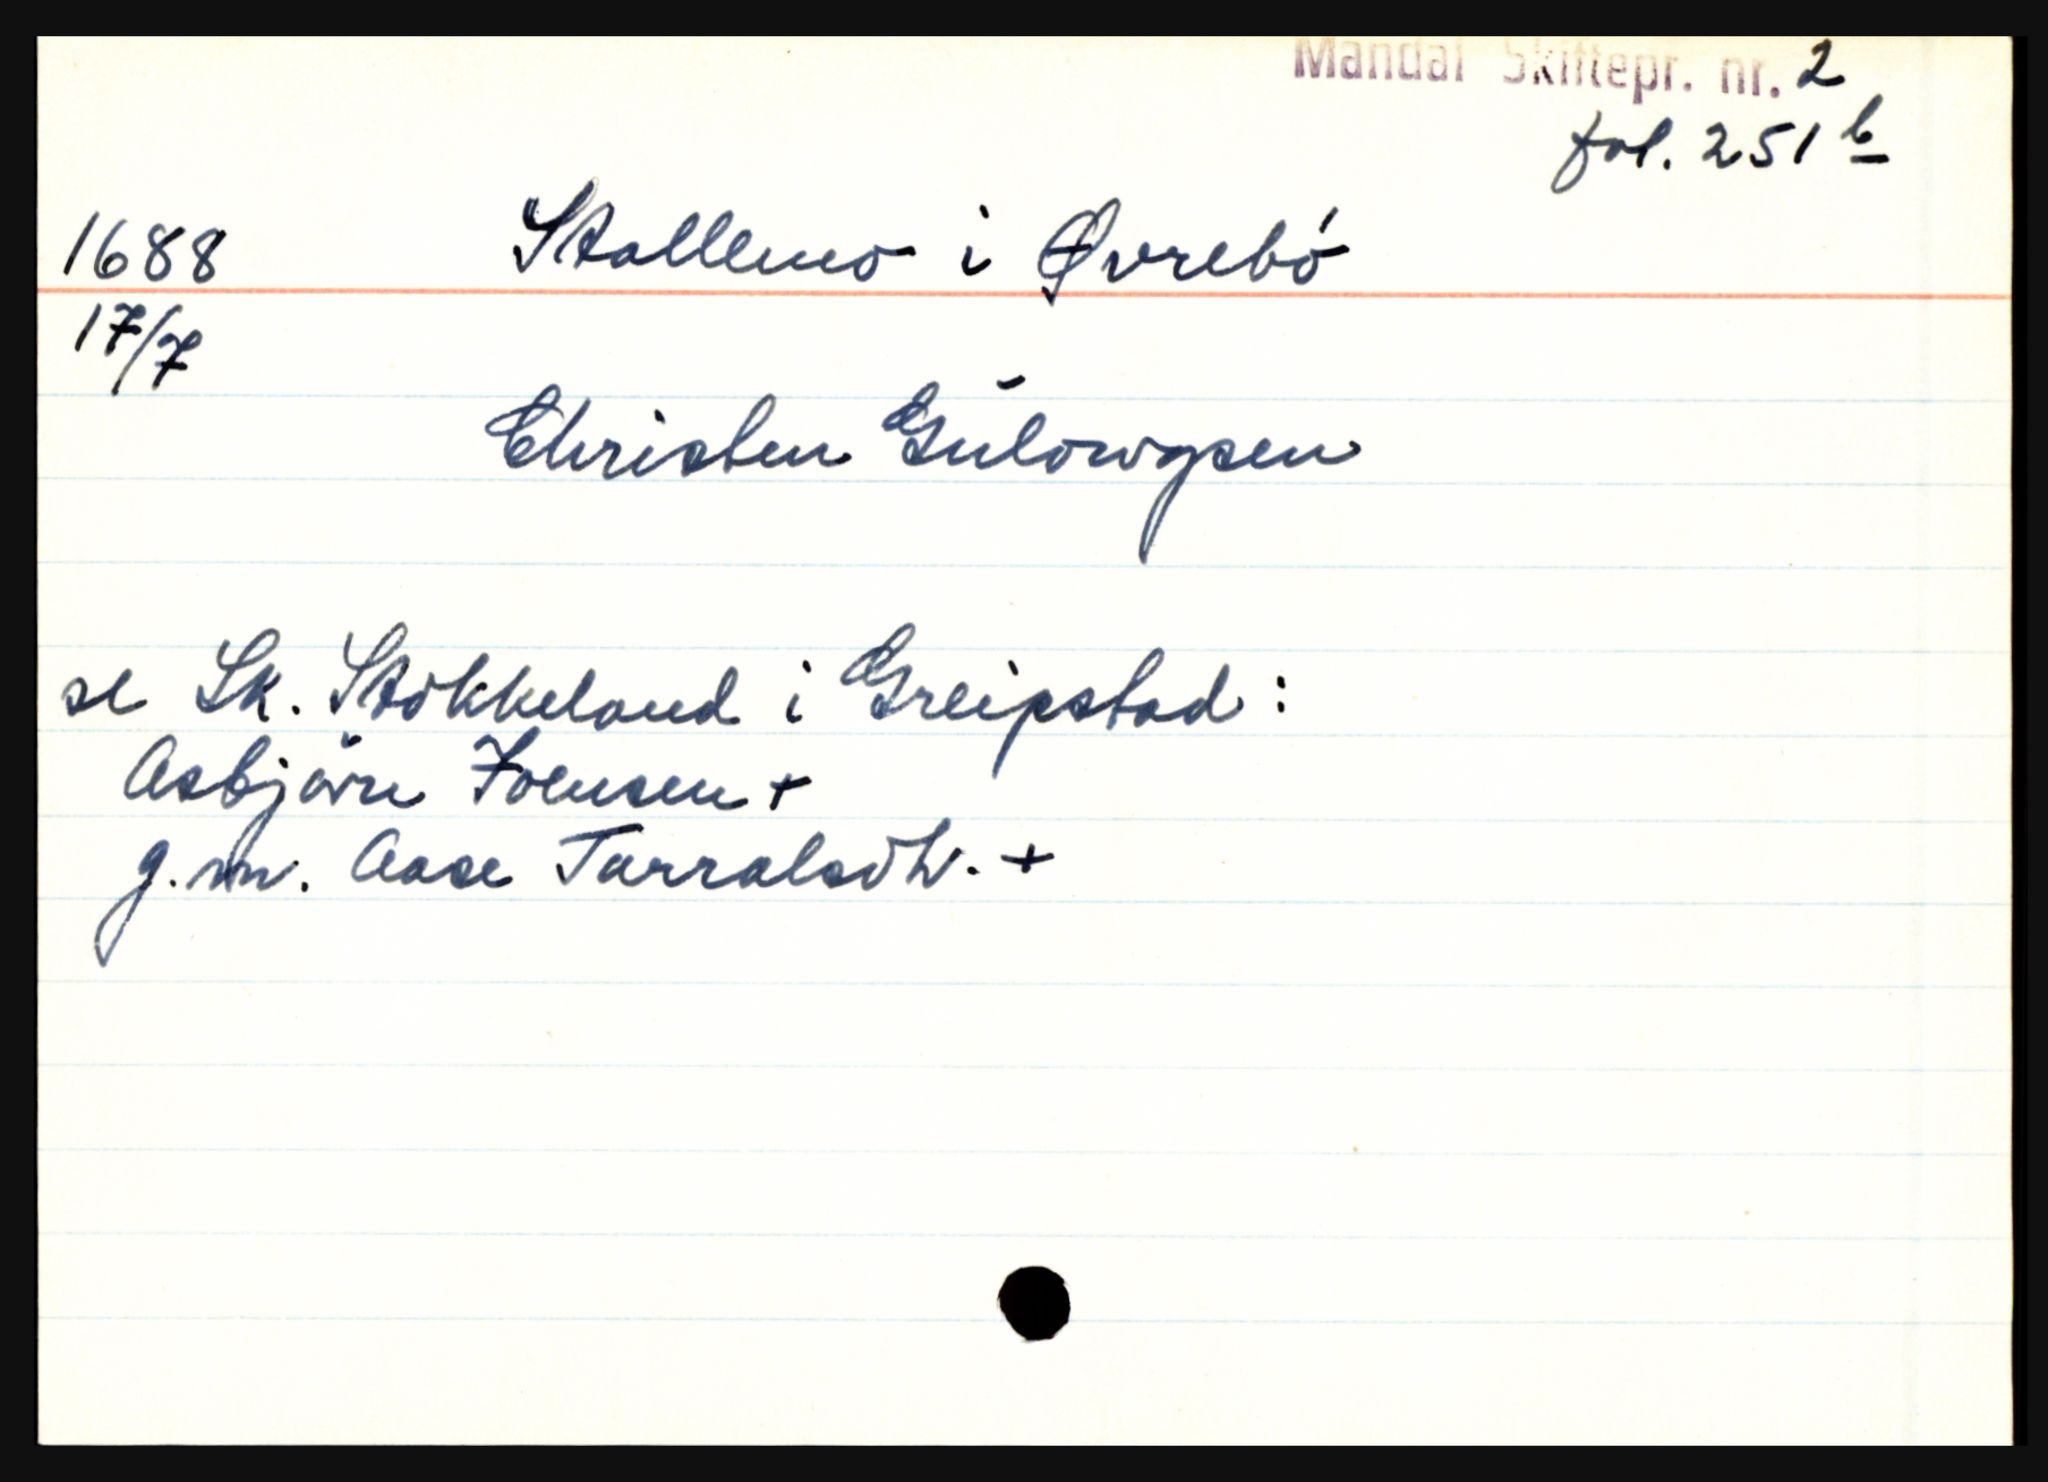 Mandal Skiftepr. nr. 2
fol. 251 b
1688 Stallemo i Øvrebó
17/7
Christen Gúlowgsen
se Sk. Stókkeland i Greipstad:
Asbjórn Joensen +
g.m. Aase Tarralsdtr. +